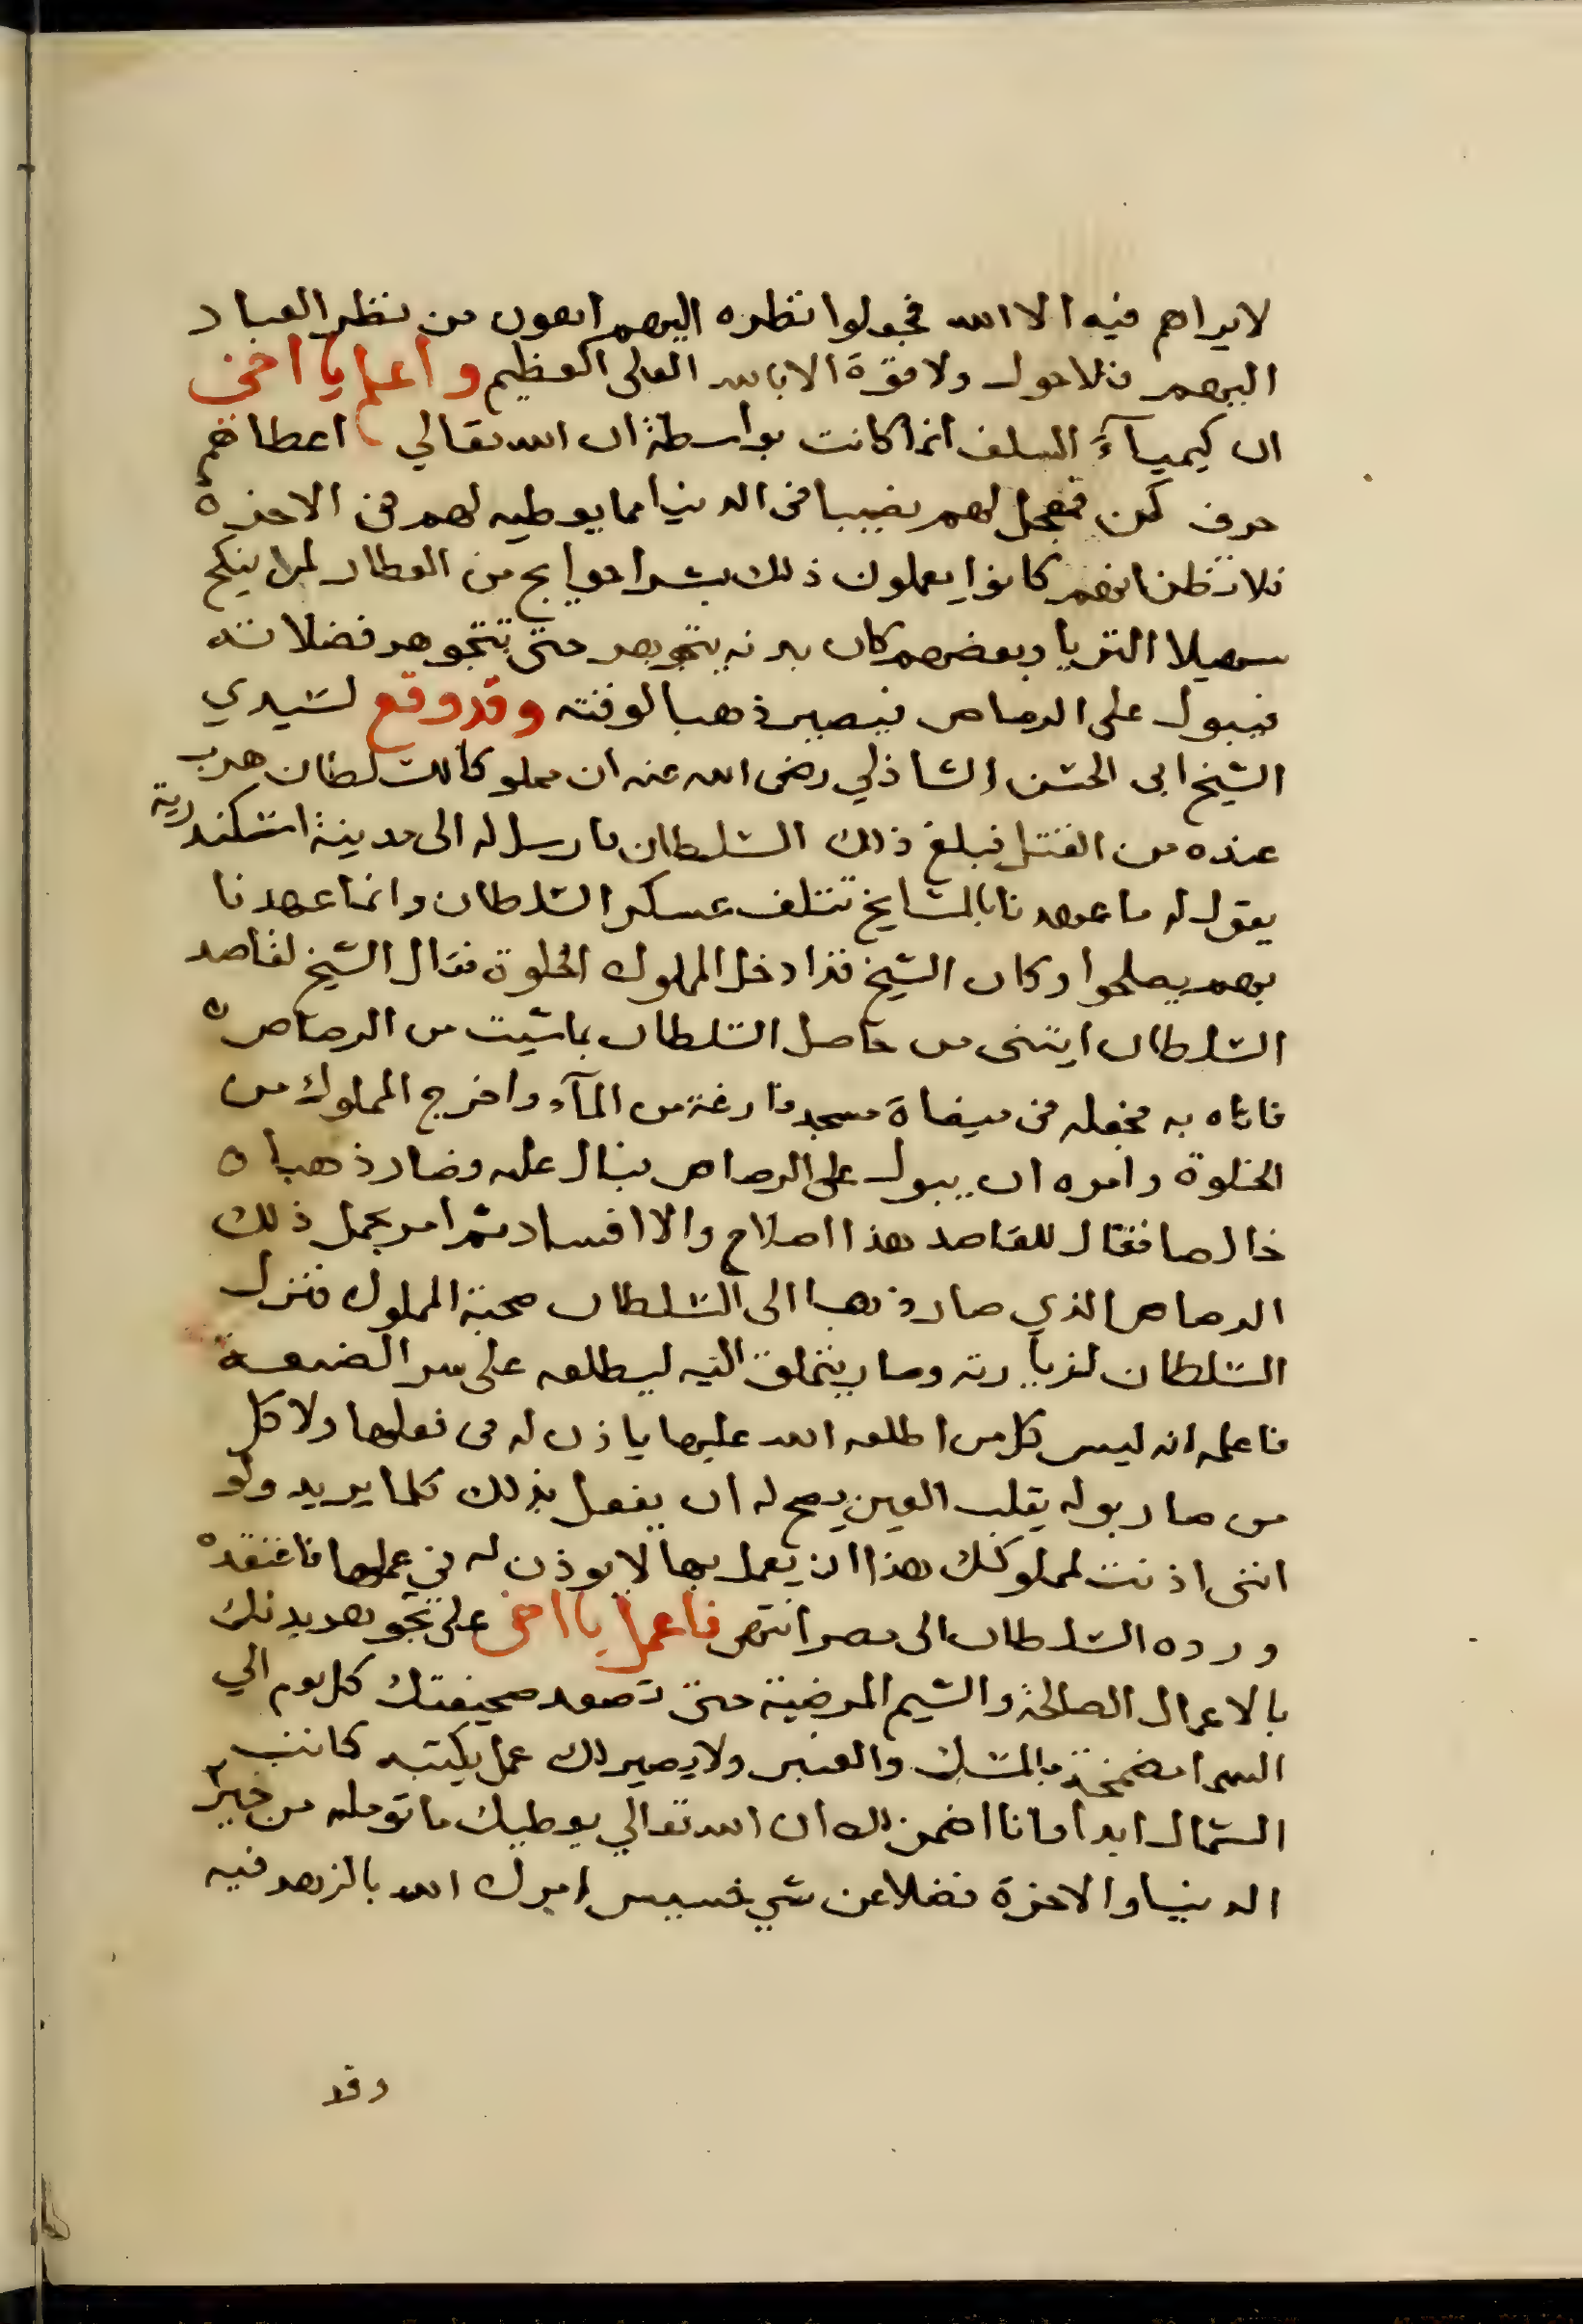 لا يراهم فيه الا الله فجعلوا نظره اليهم اهون من نظر العباد
اليهم فلا حول ولا قوة الا بالله العلى العظيم واعلم يا اخى
ان كيمياء السلف انما كانت بواسطة ان الله تعالي اعطاهم
حرف كن فعجل لهم نصيبا فى الدنيا مما يعطيه لهم فى الاخرة
فلا تظن انهم كانوا يعملون ذلك بشرا حوايج من العطار
سهيلا الثريا وبعضهم كان بدنه يتجوهر حتى تتجوهر فضلاته
فيبول على الرصاص فيصير ذهبا لوقته وقد وقع لسيدي
الشيخ ابى الحسن الشاذلي رضى الله عنه ان مملوكا للسلطان هرب
عنده من القتل فبلغ ذلك السلطان فارسل له الى مدينة اسكندرية
يقول له ما عهدنا بالمشايخ تتلف عسكر السلطان وانما عهدنا
بهم يصلحوا وكان الشيخ قد ادخل المملوك الخلوة فقال الشيخ لقاصد
السلطان ايتنى من حاصل السلطان بما شيت من الرصاص ه
فاتاه به فجعله فى ميضاة مسجد فارغة من المآء واخرج المملوك من
الخلوة وامره ان يبول على الرصاص فبال عليه وصار ذهبا ه
خالصا فقال للقاصد هذا اصلاح والا افساد ثم امر بحمل ذلك
الرصاص الذي صار ذهبا الى السلطان صحبة المملوك فنزل
السلطان لزيارته وصار يتملق اليه ليطلعه على سر الصنعة
فاعلمه انه ليس كل من اطلعه الله عليها ياذن له فى فعلها ولا كل
من صار بوله يقلب العين يصح له ان يفعل بذلك كلما يريد ولو
اننى اذنت لمملوكك هذا ان يعمل بها لا يوذن له في عملها فاعتقده
ورده السلطان الى مصر انتهى فاعمل يا اخى على تجوهر بدنك
بالاعمال الصالحة والشيم المرضية حتى تصعد صحيفتك كل يوم الي
السما مضمخة بالمسك والعنبر ولا يصير لك عمل يكتبه كاتب
الشمال ابدا وانا اضمن لك ان الله تعالي يعطيك ما تومله من خير
الدنيا والاخرة فضلا عن شي خسيس امرك الله بالزهد فيه
وقد